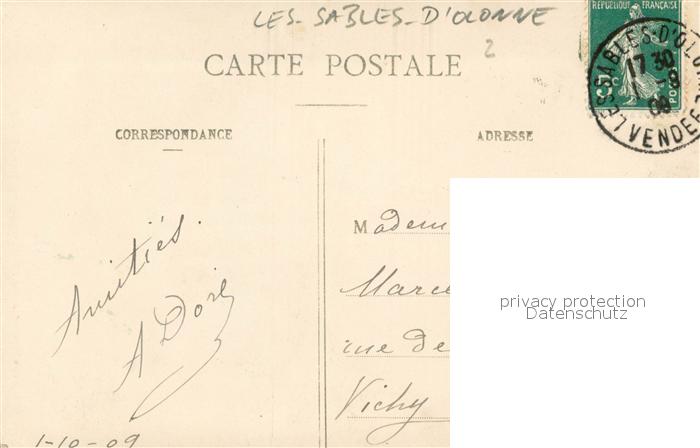 LES-SABLES-D'OLONNE
2
CARTE POSTALE
REPUBLIQUE FRANÇAISE
5 C
POSTES
LES SABLES-D'OLO
17 30
1 -9
09
VENDEE
CORRESPONDANCE
ADRESSE
Amitiés.
A Doré
1-10-09
Madem
Marce
rue de
Vichy
privacy protection
Datenschutz